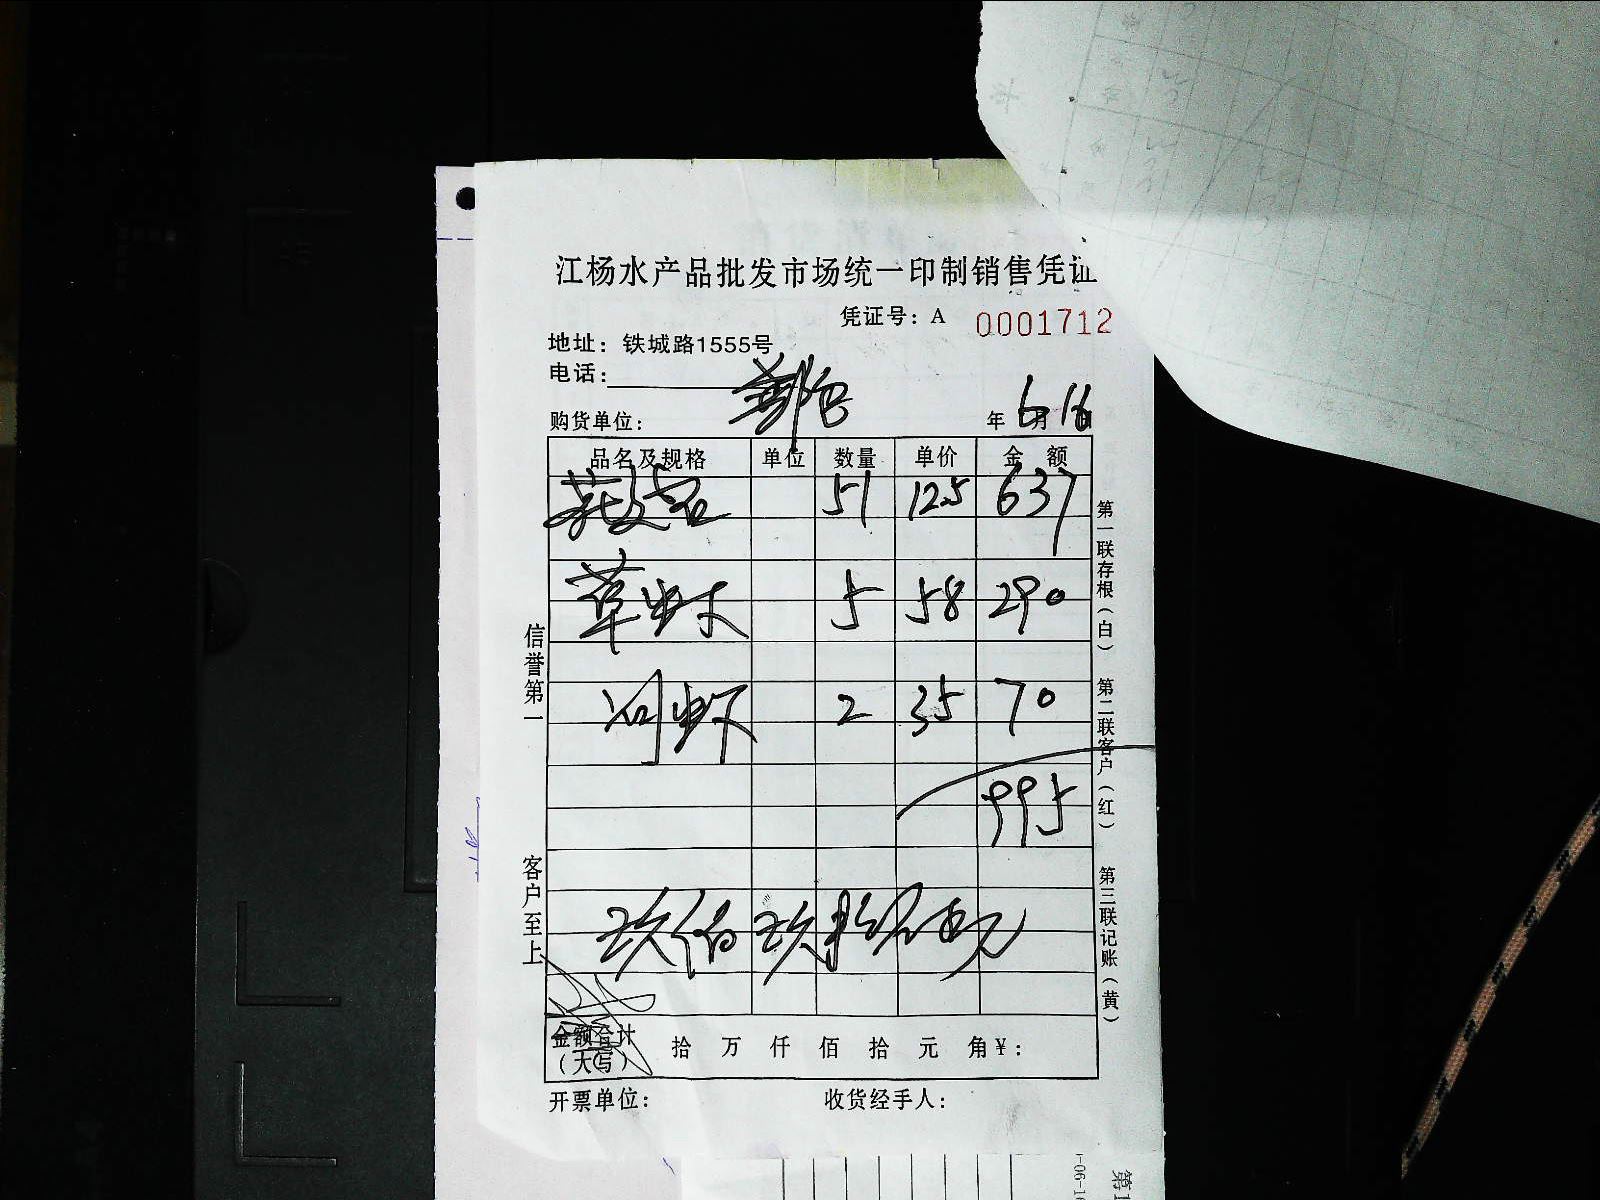 江杨水产品批发市场统一印制销售凭证
凭证号：A 0001712
地址：铁城路1555号
电话：
购货单位： 年 6月16日
品名及规格 单位 数量 单价 金 额
51 125 637
草虾 5 58 290
河虾 2 35 70
995
玖佰玖拾伍元
金额合计
（大写） 拾 万 仟 佰 拾 元 角¥：
开票单位： 收货经手人：
信誉第一
客户至上
第一联存根（白）
第二联客户（红）
第三联记账（黄）